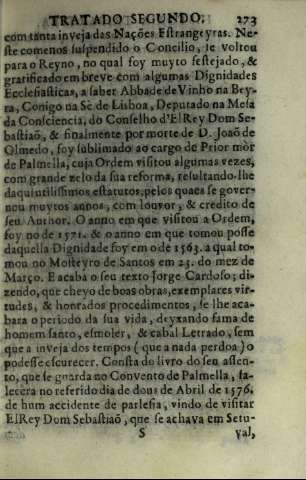 TRATADO SEGUNDO. 273
com tanta inveja das Nações Estrangeyras. Ne-
ste comenos suspendido o Concilio, se voltou
para o Reyno, no qual foy muyto festejado, &
gratificado em breve com algumas Dignidades
Ecclesiasticas, a saber Abbade de Vinho na Bey-
ra, Conigo na Sè de Lisboa, Deputado na Mesa
da Consciencia, do Conselho d'ElRey Dom Se-
bastiaõ, & finalmente por morte de D. Joaõ de
Olmedo, foy sublimado ao cargo de Prior mòr
de Palmella, cuja Ordem visitou algumas vezes,
com grande zelo da sua reforma, resultando-lhe
daqui utilissimos estatutos, pelos quaes se gover-
nou muytos annos, com louvor, & credito de
seu Author. O anno em que visitou a Ordem,
foy no de 1571. & o anno em que tomou posse
daquella Dignidade foy em o de 1563. a qual to-
mou no Mosteyro de Santos em 25. do mez de
Março. E acaba o seu texto Jorge Cardoso; di-
zendo, que cheyo de boas obras, exemplares vir-
tudes, & honrados procedimentos, se lhe aca-
bara o periodo da sua vida, deyxando fama de
homem santo, esmoler, & cabal Letrado, sem
que a inveja dos tempos (que a nada perdoa) o
podesse escurecer. Consta do livro do seu assen-
to, que se guarda no Convento de Palmella, fa-
lecera no referido dia de dous de Abril de 1576.
de hum accidente de parlesia, vindo de visitar
ElRey Dom Sebastiaõ, que se achava em Setu-
S val,